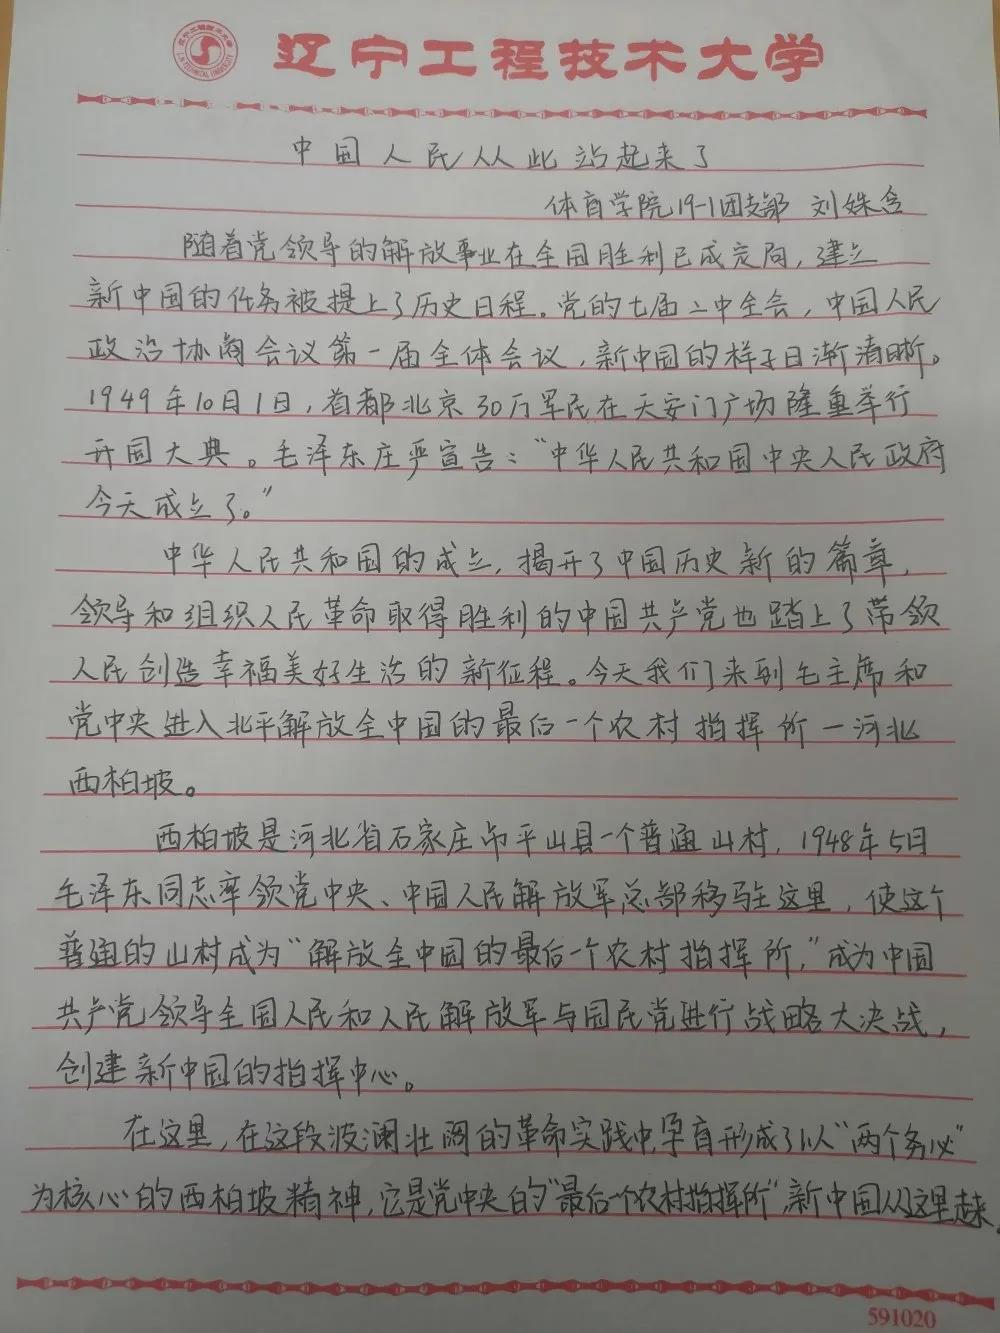 辽宁工程技术大学
中国人民从此站起来了
体育学院19-1团支部 刘姝含
随着党领导的解放事业在全国胜利已成定局，建立
新中国的任务被提上了历史日程。党的七届二中全会，中国人民
政治协商会议第一届全体会议，新中国的样子日渐清晰。
1949年10月1日，首都北京30万军民在天安门广场隆重举行
开国大典。毛泽东庄严宣告：“中华人民共和国中央人民政府
今天成立了。”
中华人民共和国的成立，揭开了中国历史新的篇章，
领导和组织人民革命取得胜利的中国共产党也踏上了带领
人民创造幸福美好生活的新征程。今天我们来到毛主席和
党中央进入北平解放全中国的最后一个农村指挥所一河北
西柏坡。
西柏坡是河北省石家庄市平山县一个普通山村，1948年5月
毛泽东同志率领党中央、中国人民解放军总部移驻这里，使这个
普通的山村成为“解放全中国的最后一个农村指挥所，”成为中国
共产党领导全国人民和人民解放军与国民党进行战略大决战，
创建新中国的指挥中心。
在这里，在这段波澜壮阔的革命实践中，孕育形成了以“两个务必”
为核心的西柏坡精神，它是党中央的“最后一个农村指挥所”，新中国从这里走来，
591020